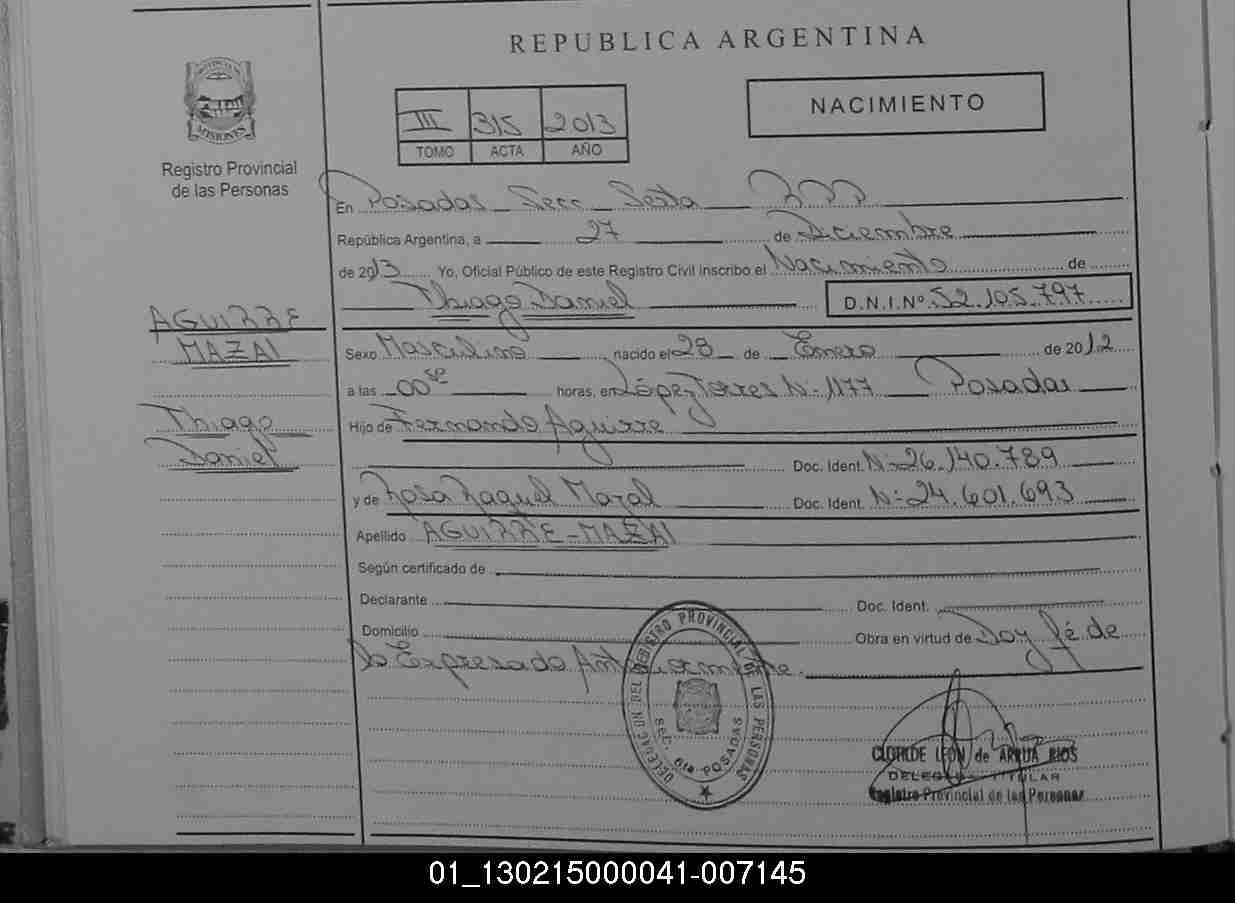 REPUBLICA ARGENTINA
PROVINCIA DE
MISIONES
Registro Provincial
de las Personas
III 315 2013
TOMO ACTA AÑO
NACIMIENTO
En Posadas Secc Sexta
República Argentina, a 27 de Diciembre
de 2013 Yo, Oficial Público de este Registro Civil inscribo el Nacimiento de
Thiago Daniel D.N.I.Nº 52.105.797
AGUIRRE
MAZAL
Thiago
Daniel
Sexo Masculino nacido el 28 de Enero de 2012
a las 00 horas, en López Torres Nº 1177 Posadas
Hijo de Fernando Aguirre
Doc. Ident. Nº 26.140.789
y de Rosa Raquel Mazal Doc. Ident. Nº 24.601.693
Apellido AGUIRRE-MAZAL
Según certificado de
Declarante Doc. Ident.
Domicilio Obra en virtud de Doy fé de
lo Expresado Anteriormente.
DELEGACION DEL REGISTRO PROVINCIAL DE LAS PERSONAS
SEC. 6ta POSADAS
CLOTILDE LEON de ARRUA RIOS
DELEGADA TITULAR
Registro Provincial de las Personas
01_130215000041-007145